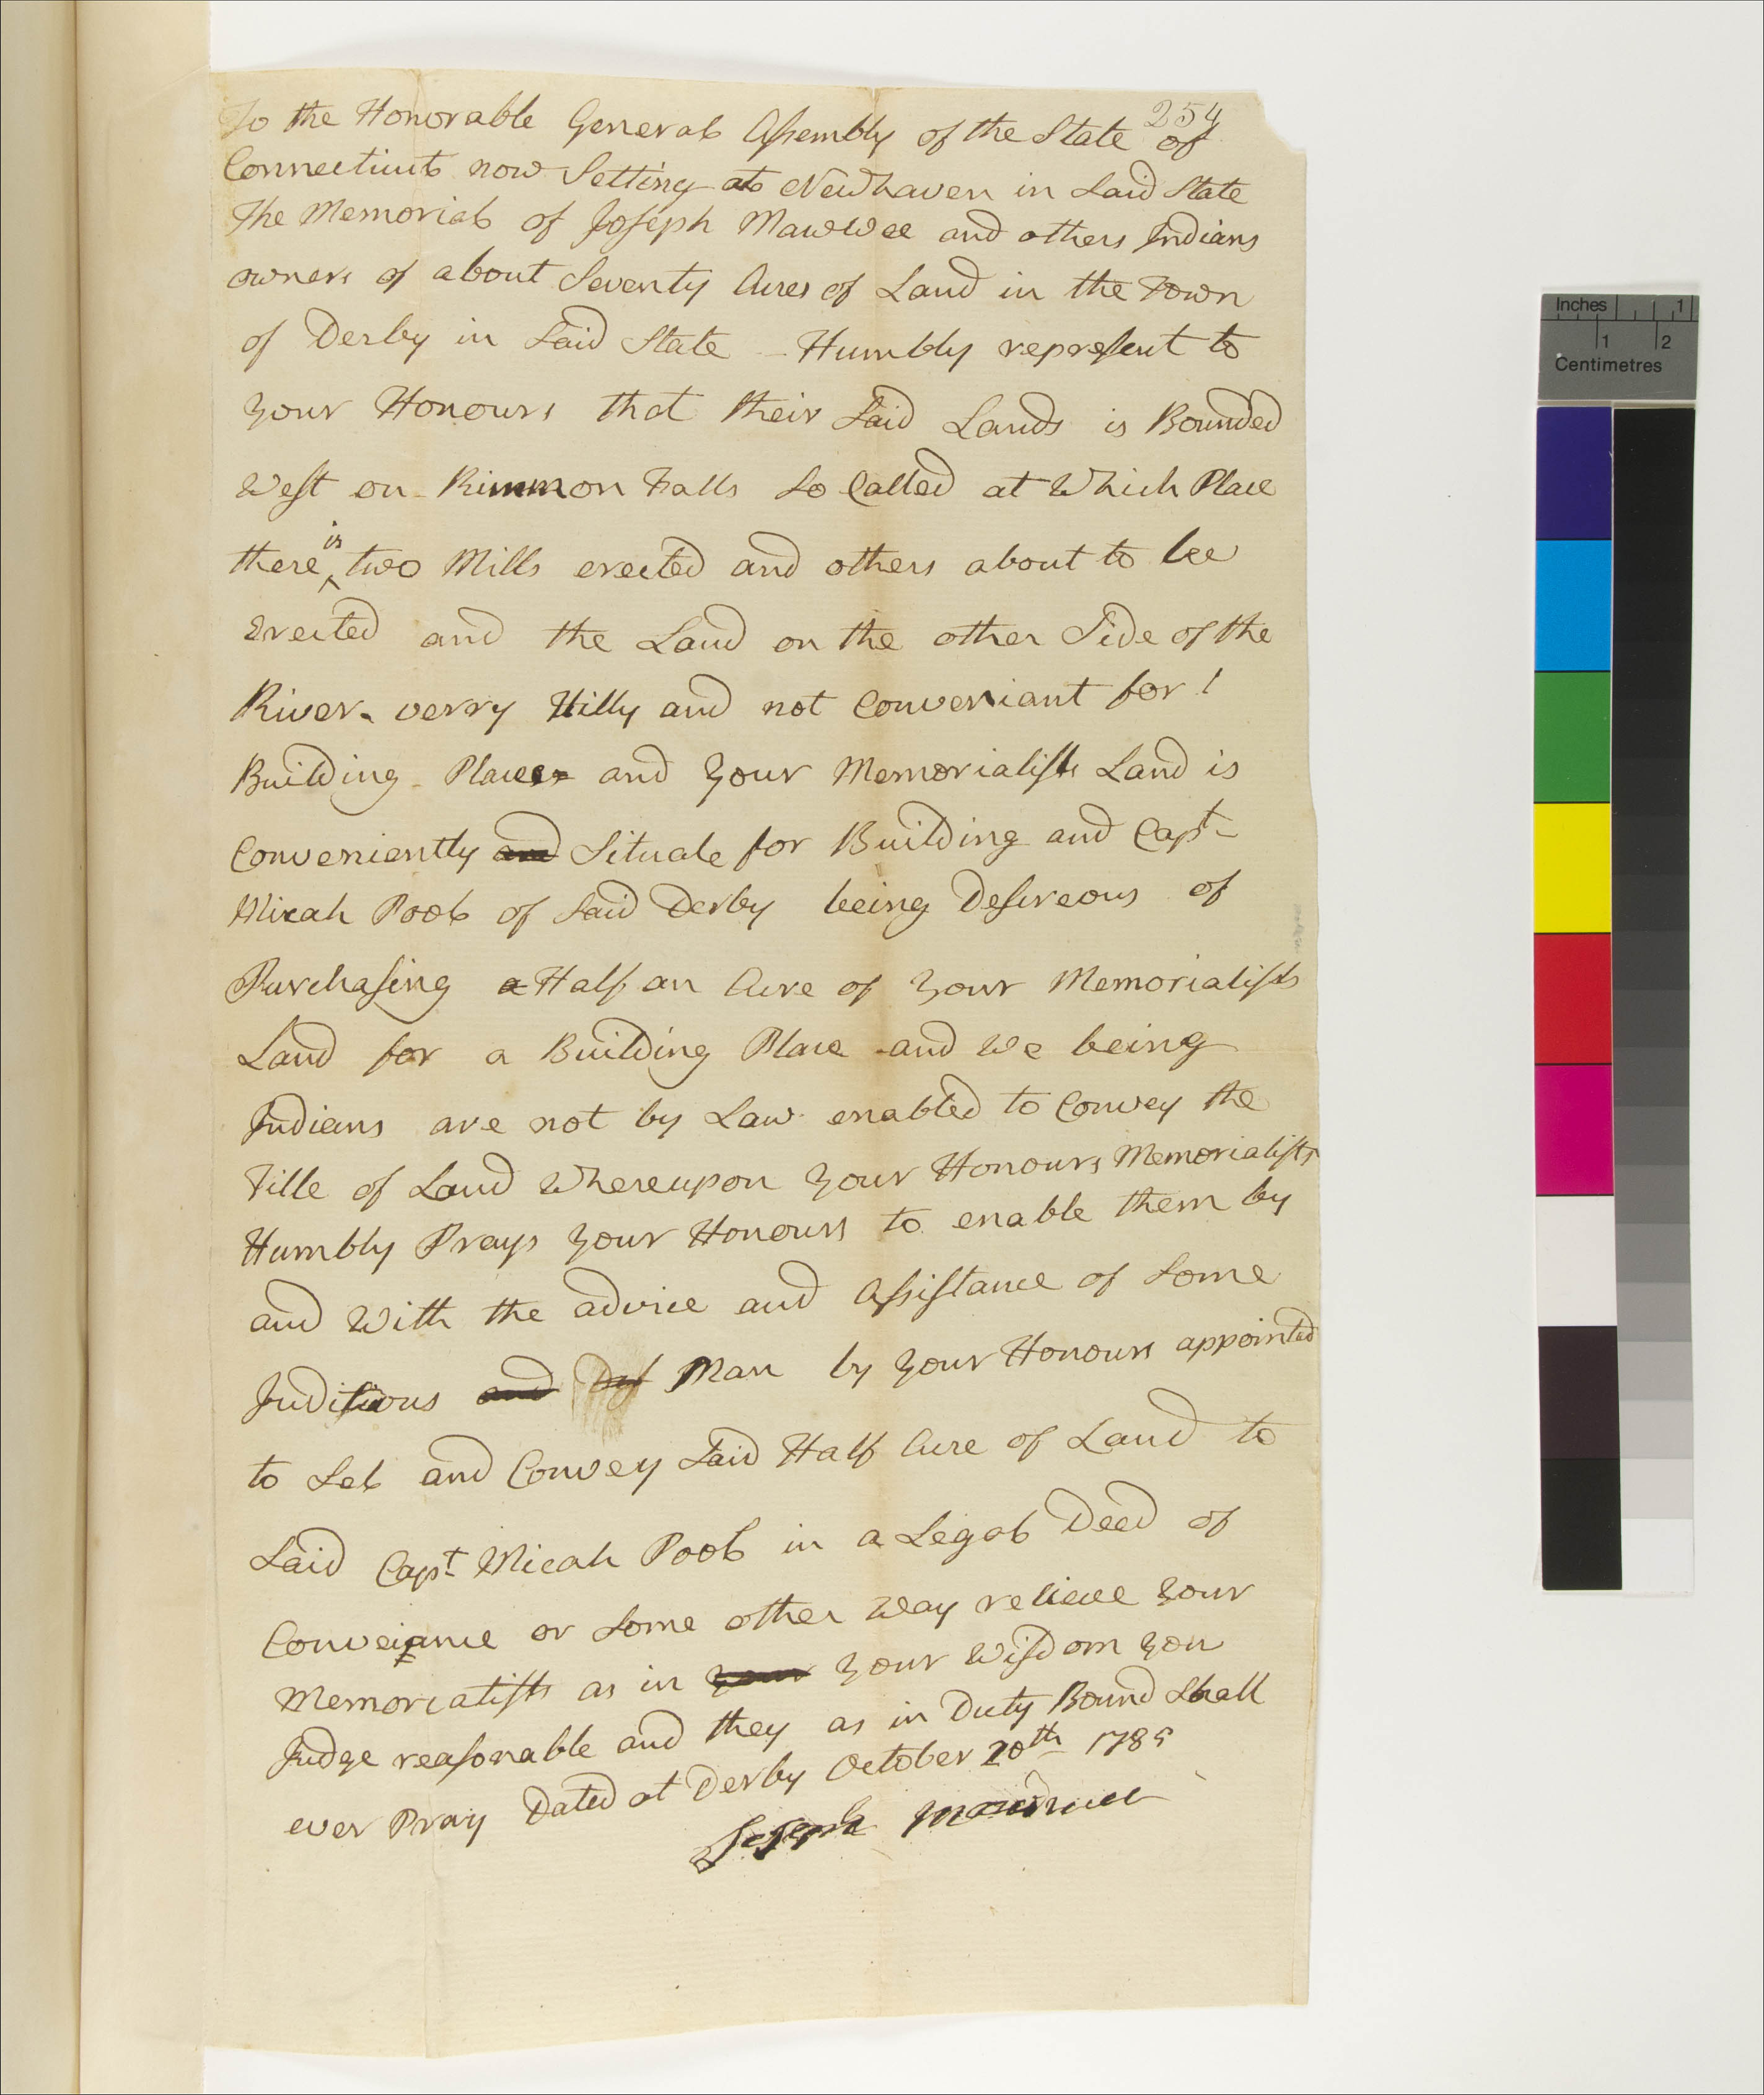 254
To the Honorable General Assembly of the State of
Connecticut now Setting at Newhaven in Said State
The Memorial of Joseph Mawwee and others Indians
owners of about Seventy Acres of Land in the Town
of Derby in Said State - Humbly represent to
your Honours that their Said Lands is Bounded
West on Rimmon Falls So Called at Which Place
there is two Mills erected and others about to be
Erected and the Land on the other Side of the
River verry Hilly and not Conveniant for
Building Places and your Memorialists Land is
Conveniently and Situate for Building and Capt
Micah Pool of Said Derby being Desireous of
Purchasing a Half an Acre of your Memorialists
Land for a Building Place and we being
Indians are not by Law enabled to Convey the
Title of Land Whereupon your Honours Memorialists
Humbly Prays your Honours to enable them by
and With the advice and Assistance of Some
Juditious and Man by your Honours appointed
to Sel and Convey Said Half Acre of Land to
Said Capt Micah Pool in a Legal Deed of
Conveiance or Some other way relieve your
Memorialists as in your your Wisdom you
Judge reasonable and they as in Duty Bound Shall
ever Pray Dated at Derby October 20th 1785
Joseph
Inches 1
1 2
Centimetres